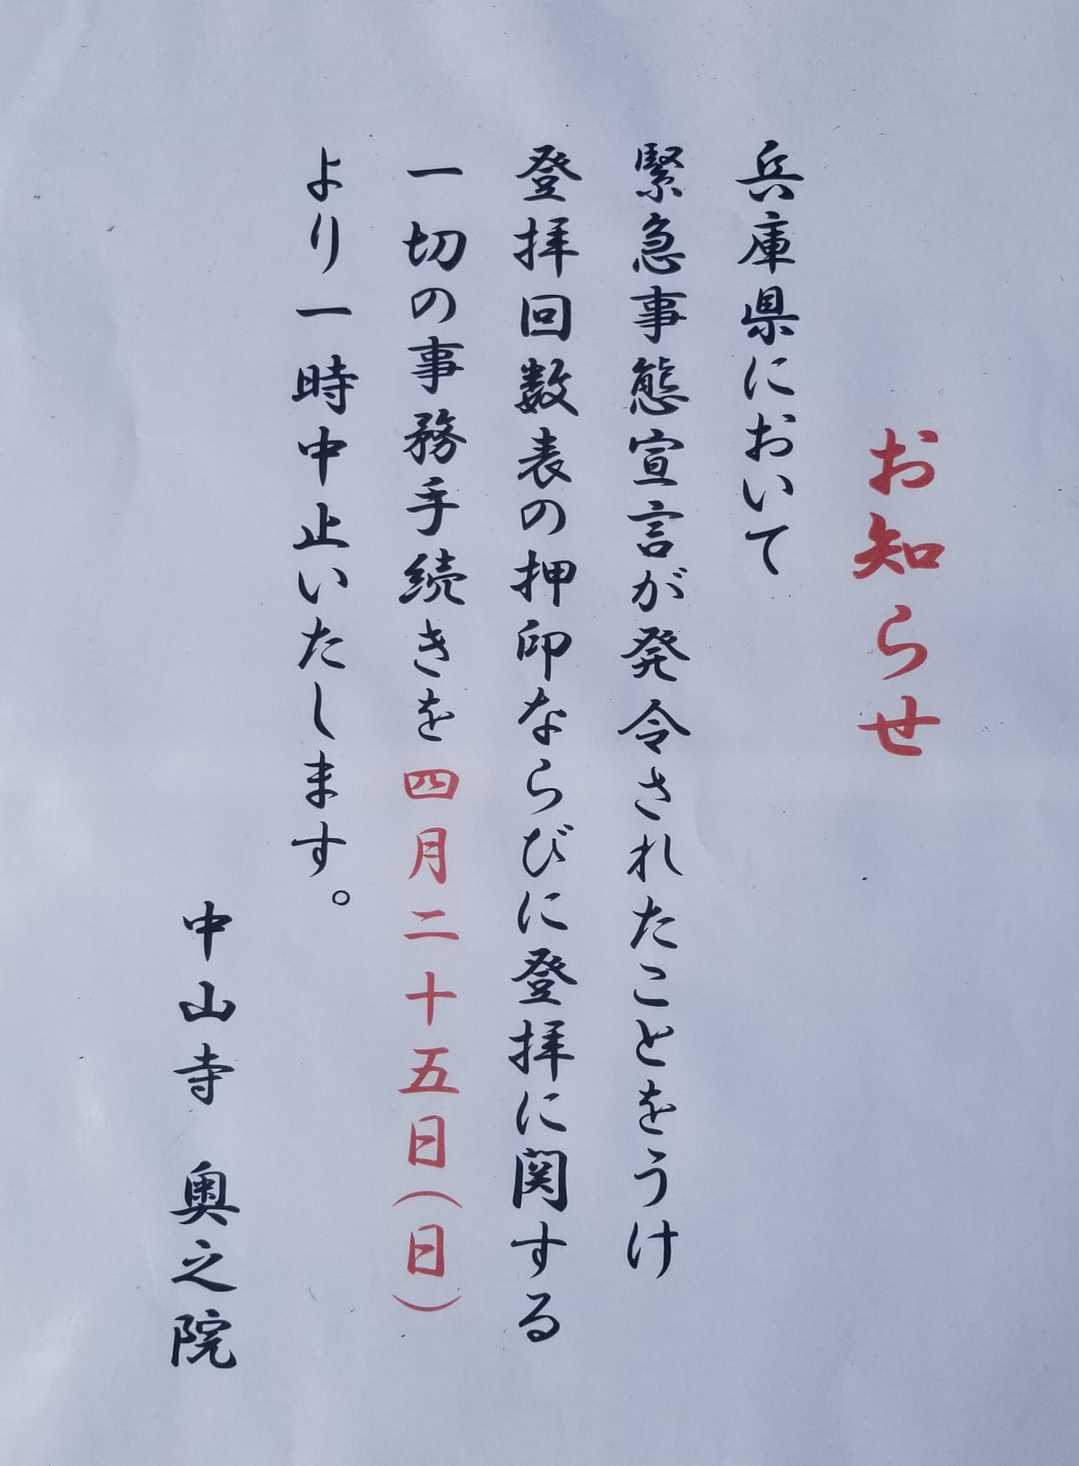 お知らせ
兵庫県において
緊急事態宣言が発令されたことをうけ
登拝回数表の押印ならびに登拝に関する
一切の事務手続きを四月二十五日(日)
より一時中止いたします。
中山寺 奥之院